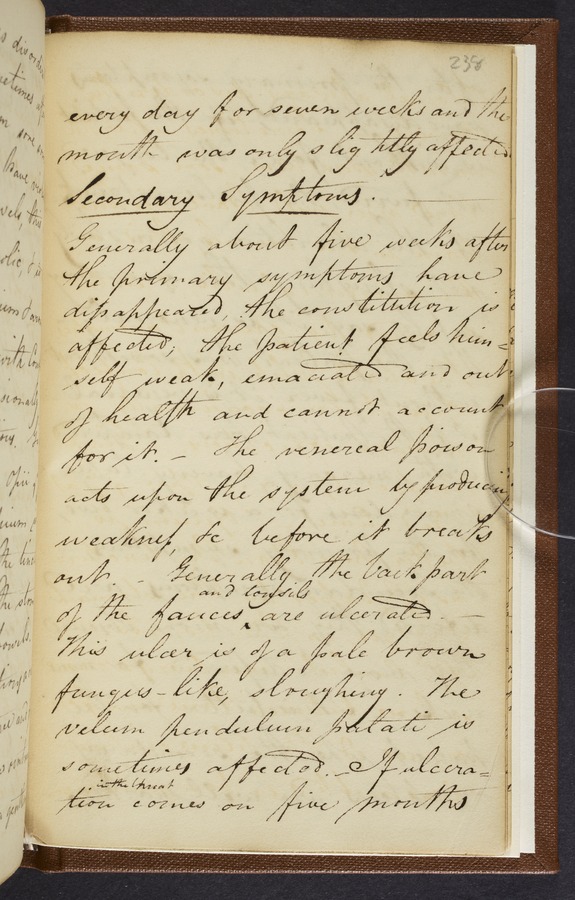 238
every day for seven weeks and the
mouth was only slightly affected
Secondary Symptoms.
Generally about five weeks after
the primary symptoms have
disappeared, the constitution is
affected; the patient feels him=
self weak, emaciated and out
of health and cannot account
for it. - The venereal poison
acts upon the system by producing
weakness, &c before it breaks
out. - Generally the back part
and tonsils
of the fauces ‸ are ulcerated. -
This ulcer is of a pale brown
fungus-like, sloughing. The
velum pendulum palati is
sometimes affected. - If ulcera=
in the throat
tion comes on five months